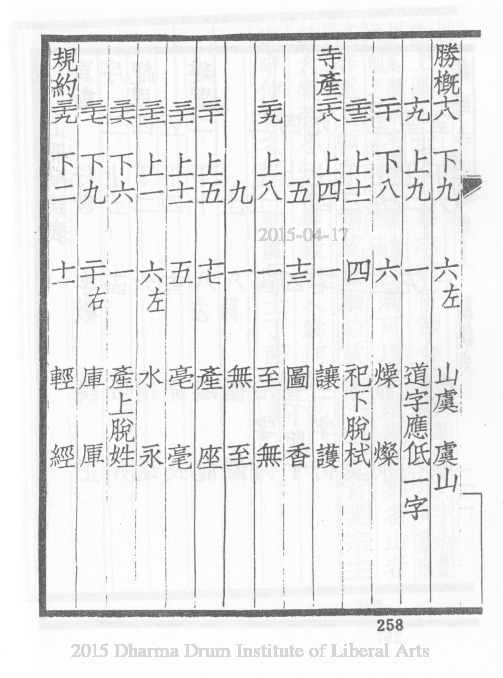 勝概十六 下九 六左 山虞 虞山
十九 上九 一 道字應低一字
二十 下八 六 燥 燦
二十三 上十一 四 祀下脫栻
寺產二十八 上四 一 讓 護
五 十三 圖 香
二十九 上八 一 至 無
九 一 無 至
三十 上五 十七 產 座
三十一 上十一 五 毫 毫
三十二 上一 六左 水 永
三十六 下六 一 產上脫姓
三十七 下九 二十右 庫 厙
規約三十九 下二 十一 輕 經
2015-04-17
258
2015 Dharma Drum Institute of Liberal Arts